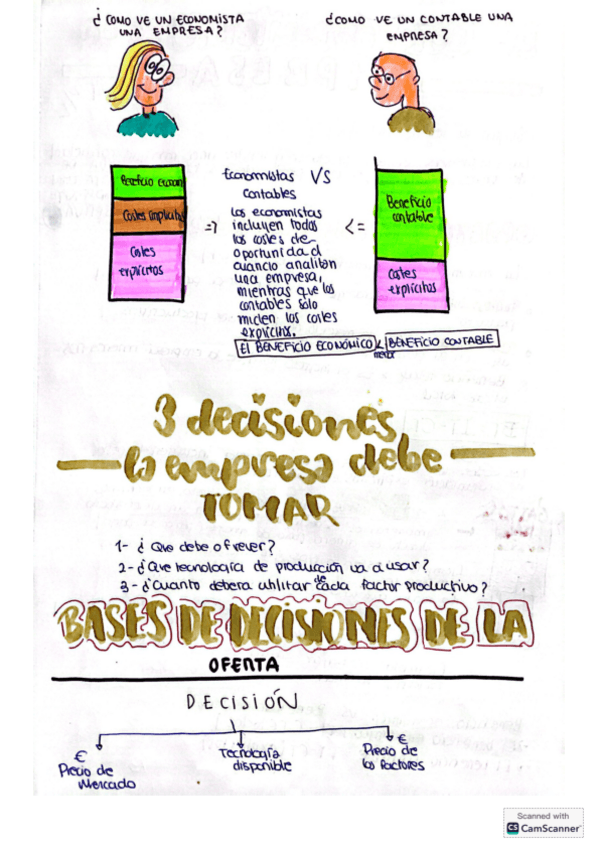 ¿COMO VE UN ECONOMISTA
UNA EMPRESA?
¿COMO VE UN CONTABLE UNA
EMPRESA?
Beneficio econom
Costes implicitos
Costes
explicitos
Economistas VS
Contables
Los economistas
incluyen todos
los costes de
oportunidad
cuando analizan
una empresa,
mientras que los
contables solo
miden los costes
explicitos.
=>
<=
Beneficio
contable
Costes
explicitos
El BENEFICIO ECONÓMICO < BENEFICIO CONTABLE
menor
3 decisiones
la empresa debe
TOMAR
1- ¿Que debe ofrever?
2- ¿Que tecnología de producción va a usar?
3- ¿Cuanto debera utilitar de cada factor productivo?
BASES DE DECISIONES DE LA
OFERTA
DECISIÓN
€
Precio de
Mercado
Tecnología
disponible
€
Precio de
los factores
Scanned with
CS CamScanner